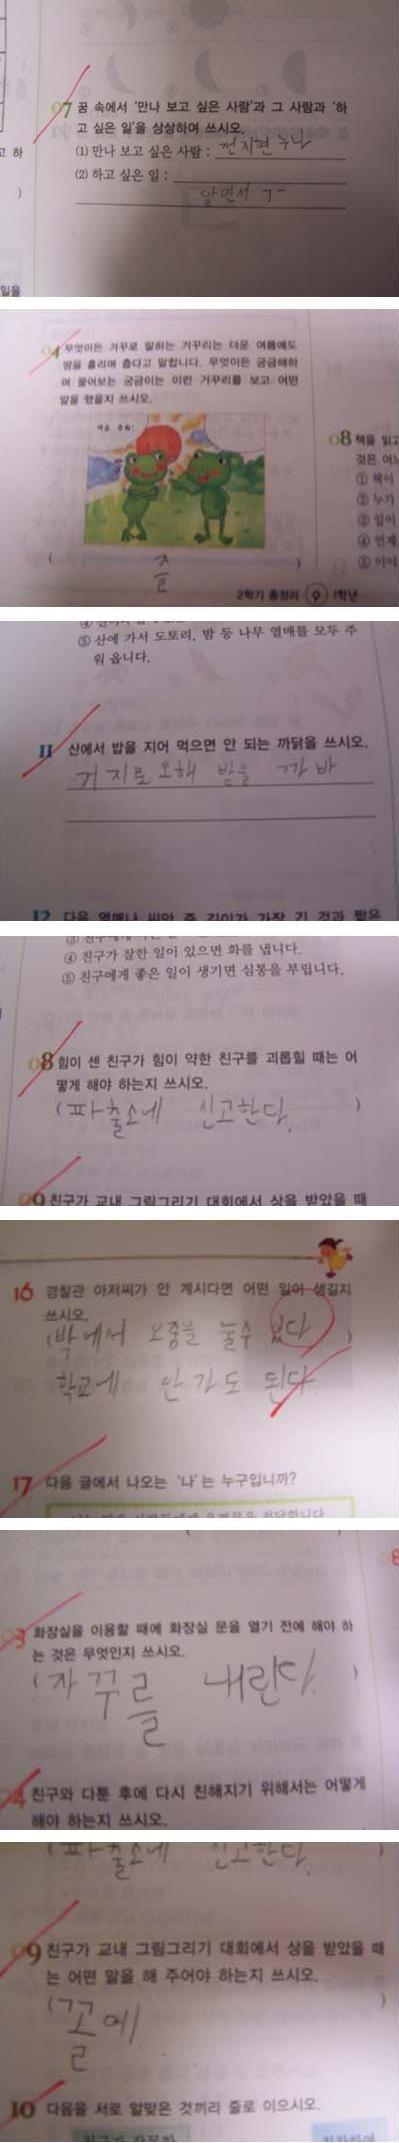 고 하
)
일을
07 꿈 속에서 '만나 보고 싶은 사람'과 그 사람과 '하
고 싶은 일'을 상상하여 쓰시오.
(1) 만나 보고 싶은 사람 : 전지현 누나
(2) 하고 싶은 일 :
알면서 ㄱ-
04 무엇이든 거꾸로 말하는 거꾸리는 더운 여름에도
땀을 흘리며 춥다고 말합니다. 무엇이든 궁금해하
며 물어보는 궁금이는 이런 거꾸리를 보고 어떤
말을 했을지 쓰시오.
아유 추워!
( 즐 )
2학기 총정리 9 1학년
08 책을 읽고
것은 어느
① 책이
② 누가
③ 일이
④ 언제,
⑤ 이야
⑤ 산에 가서 도토리, 밤 등 나무 열매를 모두 주
워 옵니다.
11 산에서 밥을 지어 먹으면 안 되는 까닭을 쓰시오.
거지로 오해 받을 까바
12 다음 열매나 씨앗 중 길이가 가장 긴 것과 짧은
④ 친구가 잘한 일이 있으면 화를 냅니다.
⑤ 친구에게 좋은 일이 생기면 심통을 부립니다.
08 힘이 센 친구가 힘이 약한 친구를 괴롭힐 때는 어
떻게 해야 하는지 쓰시오.
( 파출소에 신고한다. )
09 친구가 교내 그림그리기 대회에서 상을 받았을 때
16 경찰관 아저씨가 안 계시다면 어떤 일이 생길지
쓰시오.
(밖에서 오줌을 눌수 있다 )
학교에 안가도 된다.
17 다음 글에서 나오는 '나'는 누구입니까?
03 화장실을 이용할 때에 화장실 문을 열기 전에 해야 하
는 것은 무엇인지 쓰시오.
( 자꾸를 내린다. )
04 친구와 다툰 후에 다시 친해지기 위해서는 어떻게
해야 하는지 쓰시오.
( 파출소에 신고한다. )
09 친구가 교내 그림그리기 대회에서 상을 받았을 때
는 어떤 말을 해 주어야 하는지 쓰시오.
( 꼴에 )
10 다음을 서로 알맞은 것끼리 줄로 이으시오.